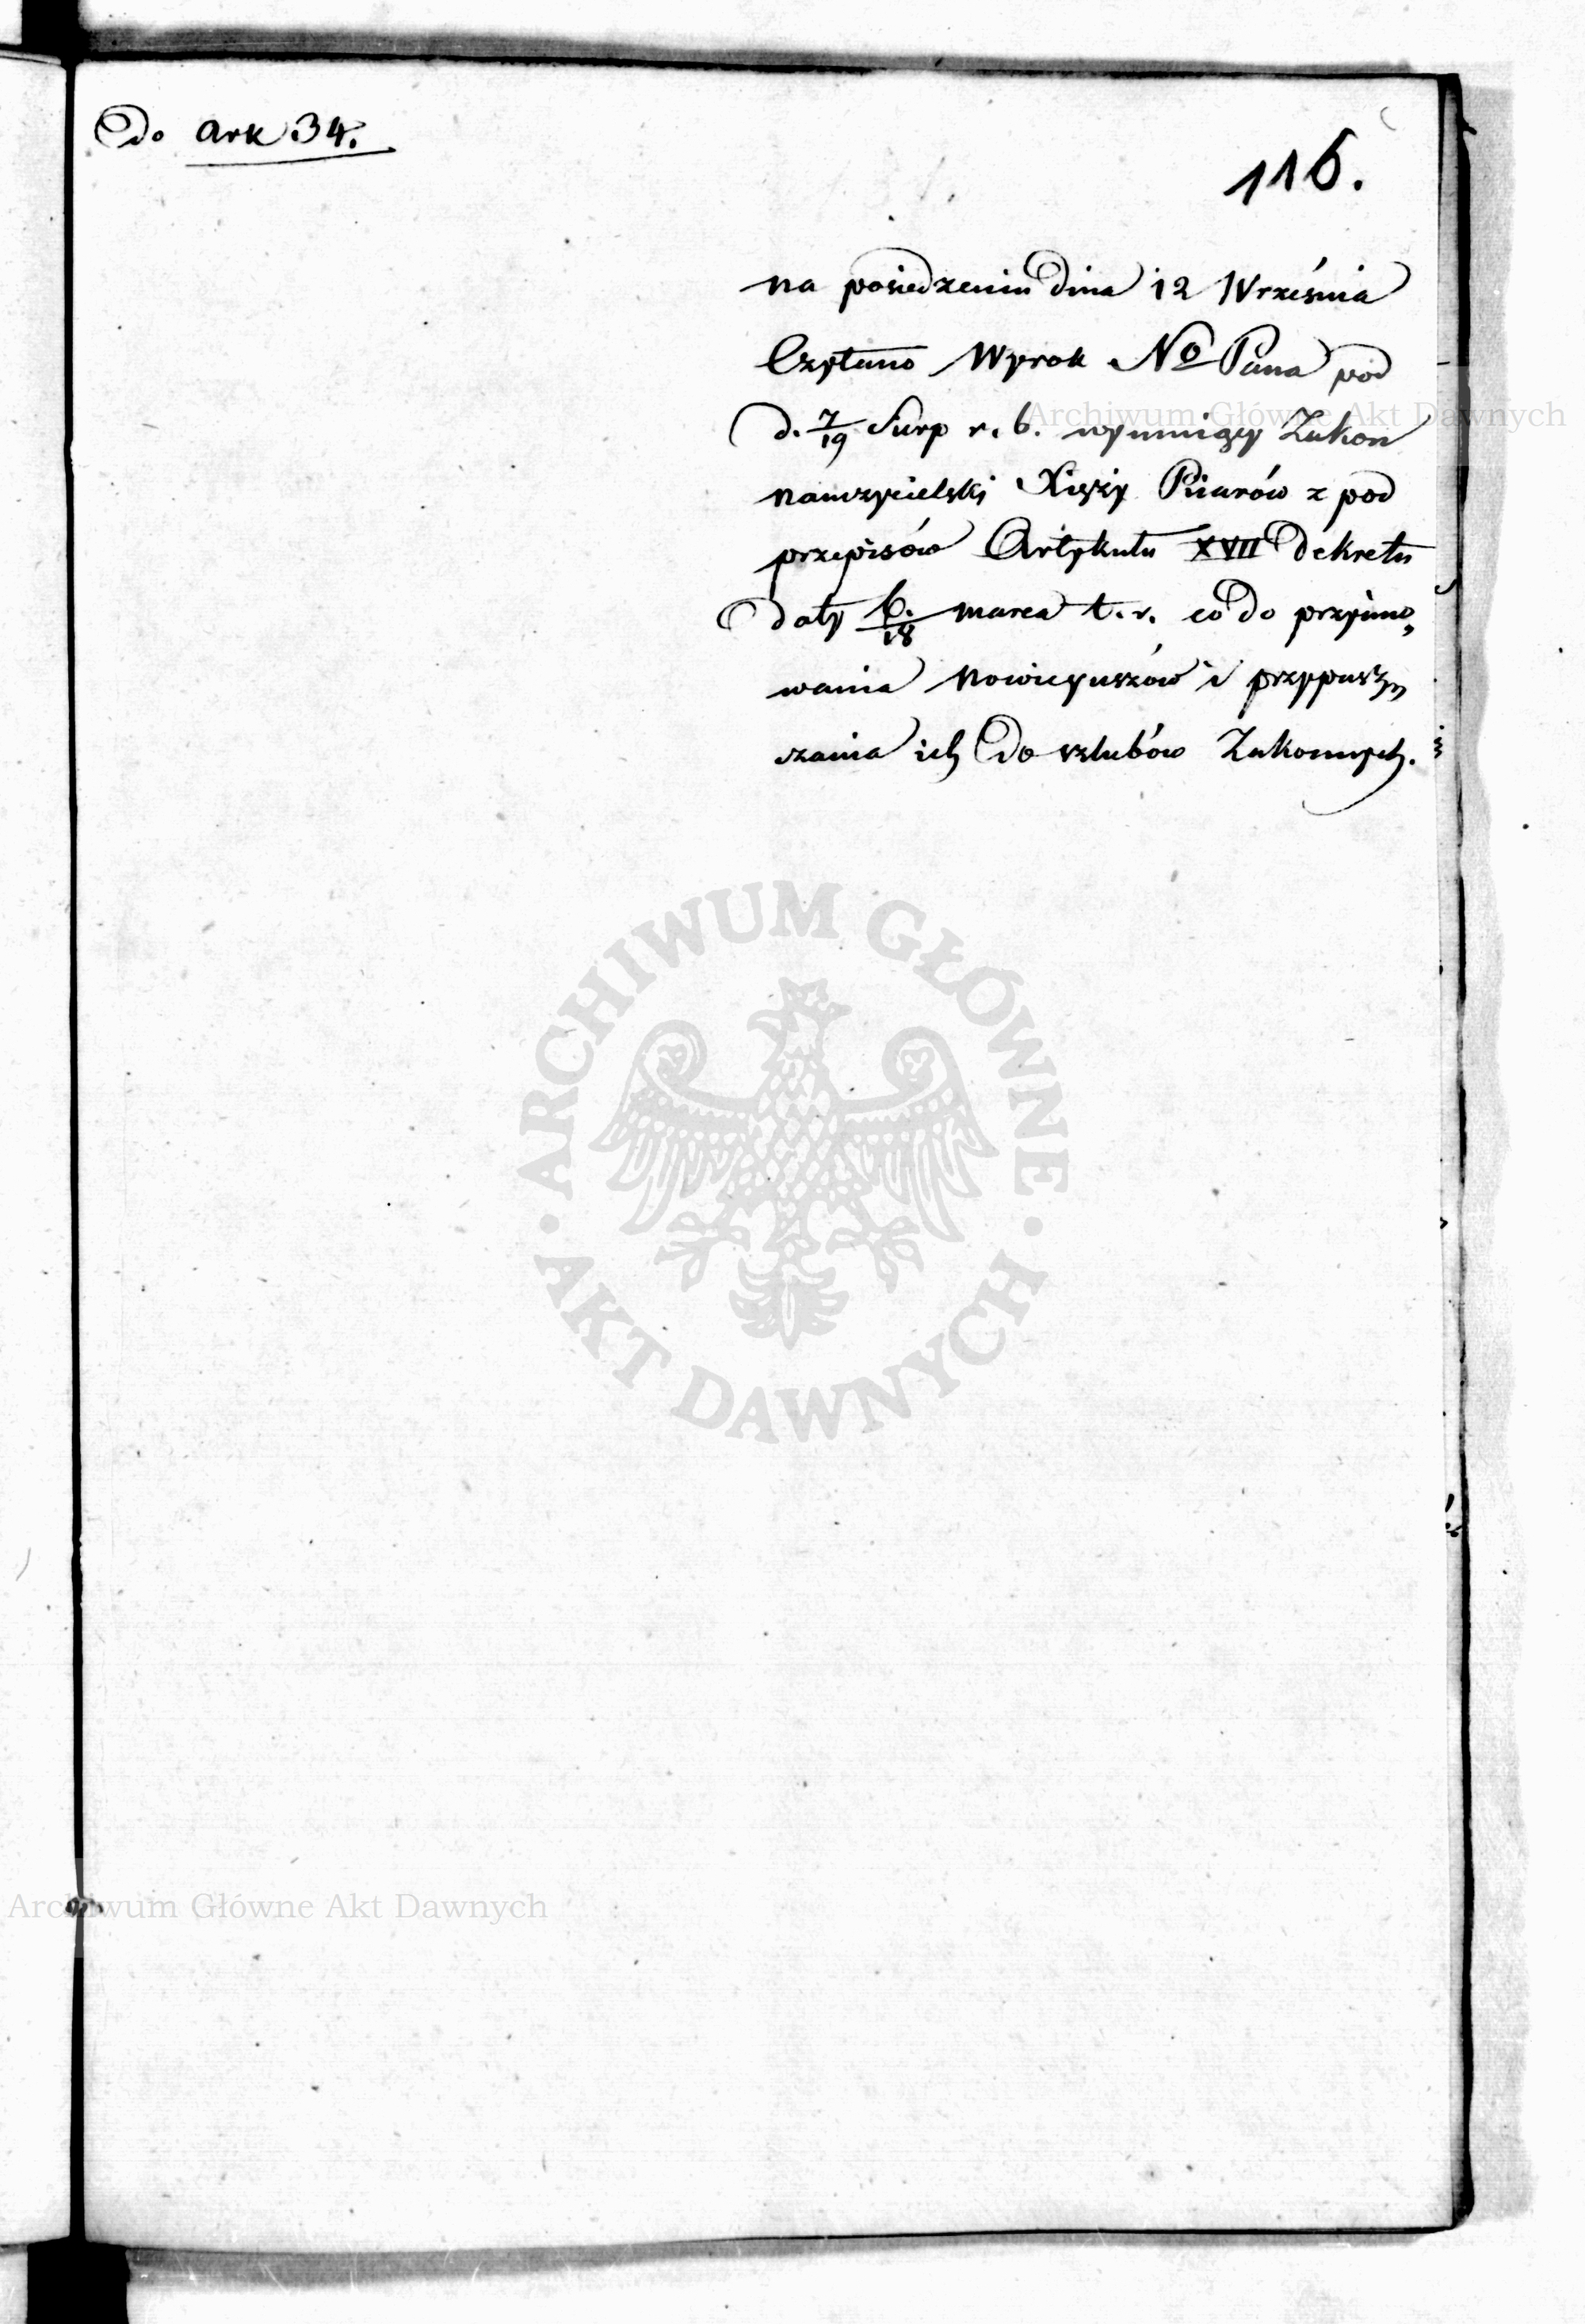 Do Ark 34.
116.
na posiedzeniu dnia 12 Września
Czytano Wyrok No Pana pod
d. 7/19 Sierp r. b. wyimuiący Zakon
nauczycielski Xięży Piiarów z pod
przepisów Artykułu XVII Dekretu
Daty 6./18 marca t. r. co do przyimo„
wania nowicyuszów i przypusz„
czania ich do szlubów Zakonnych.
Archiwum Główne Akt Dawnych
ARCHIWUM GŁÓWNE
· AKT DAWNYCH ·
Archiwum Główne Akt Dawnych